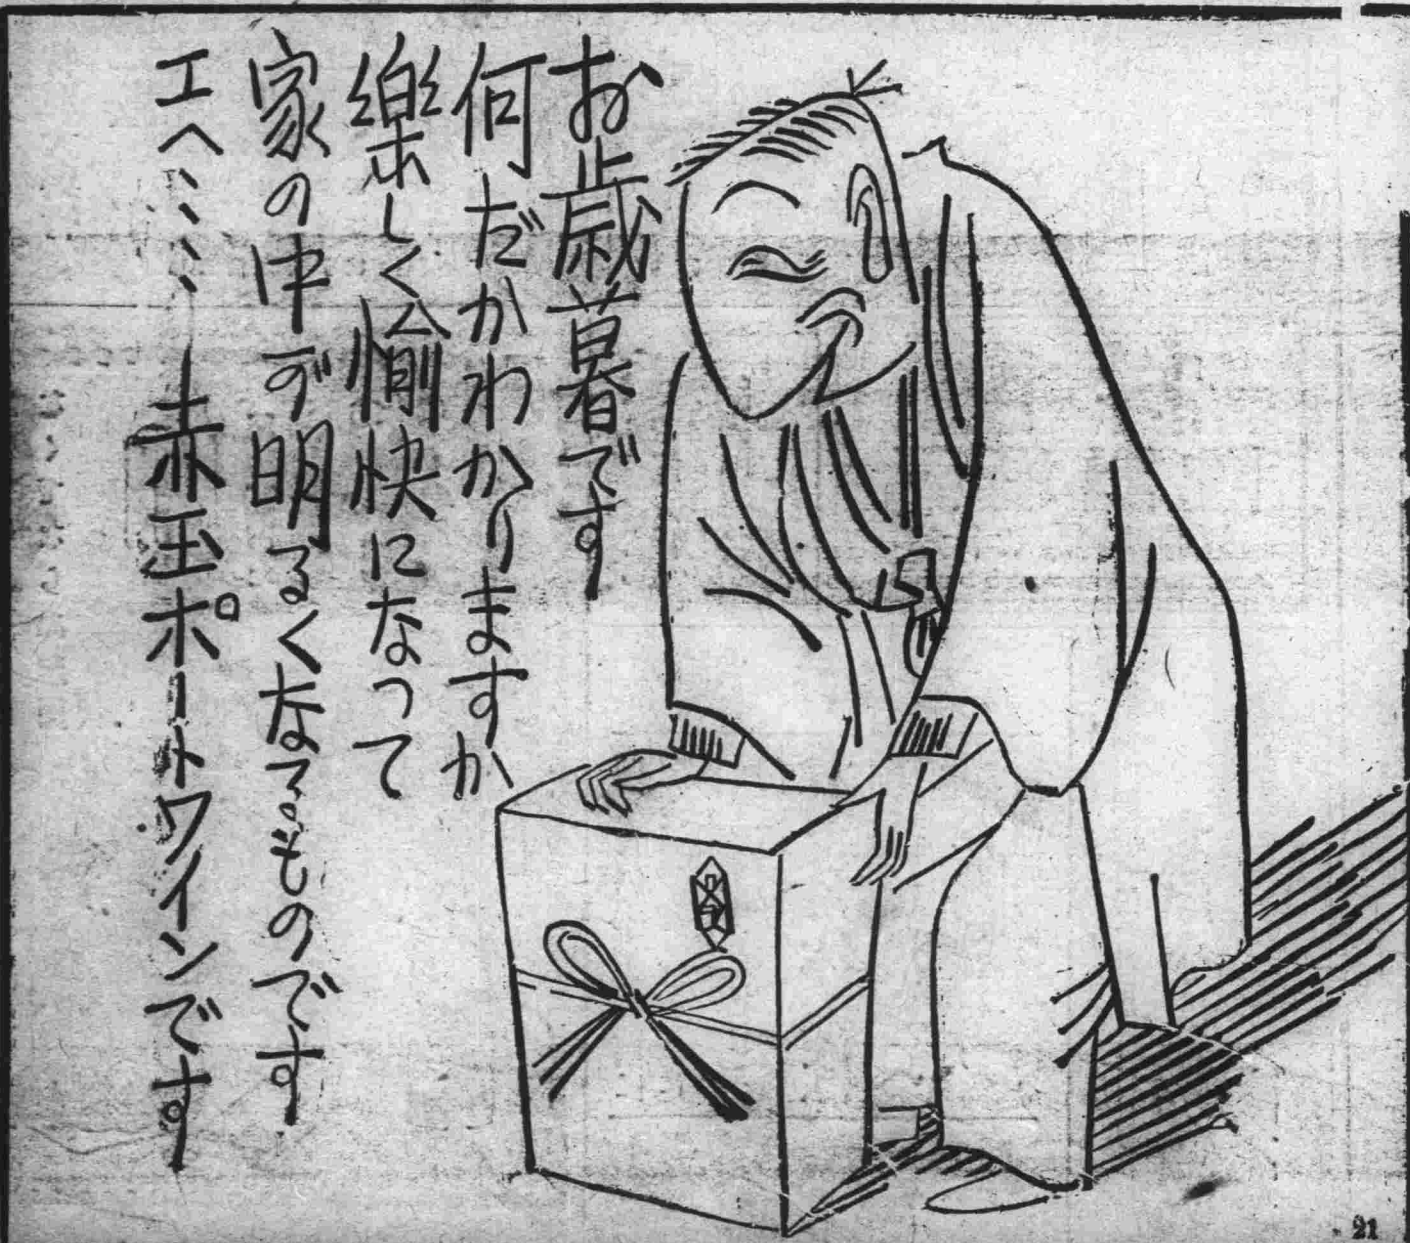 お歳暮です
何だかわかりますか
樂しく愉快になって
家の中が明るくなるものです
エヘ、、、、赤玉ポートワインです
21